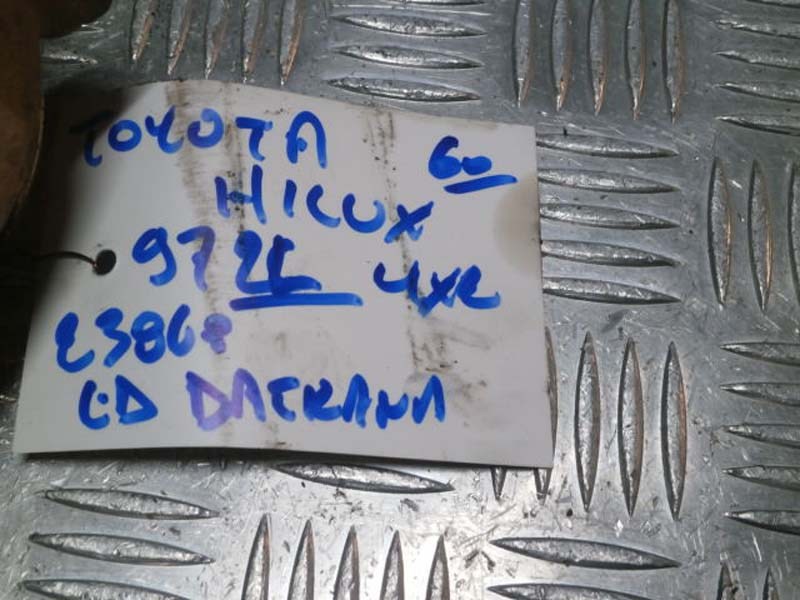 TOYOTA 60
HILUX
97 2L 4X2
23868
CD DATRANA